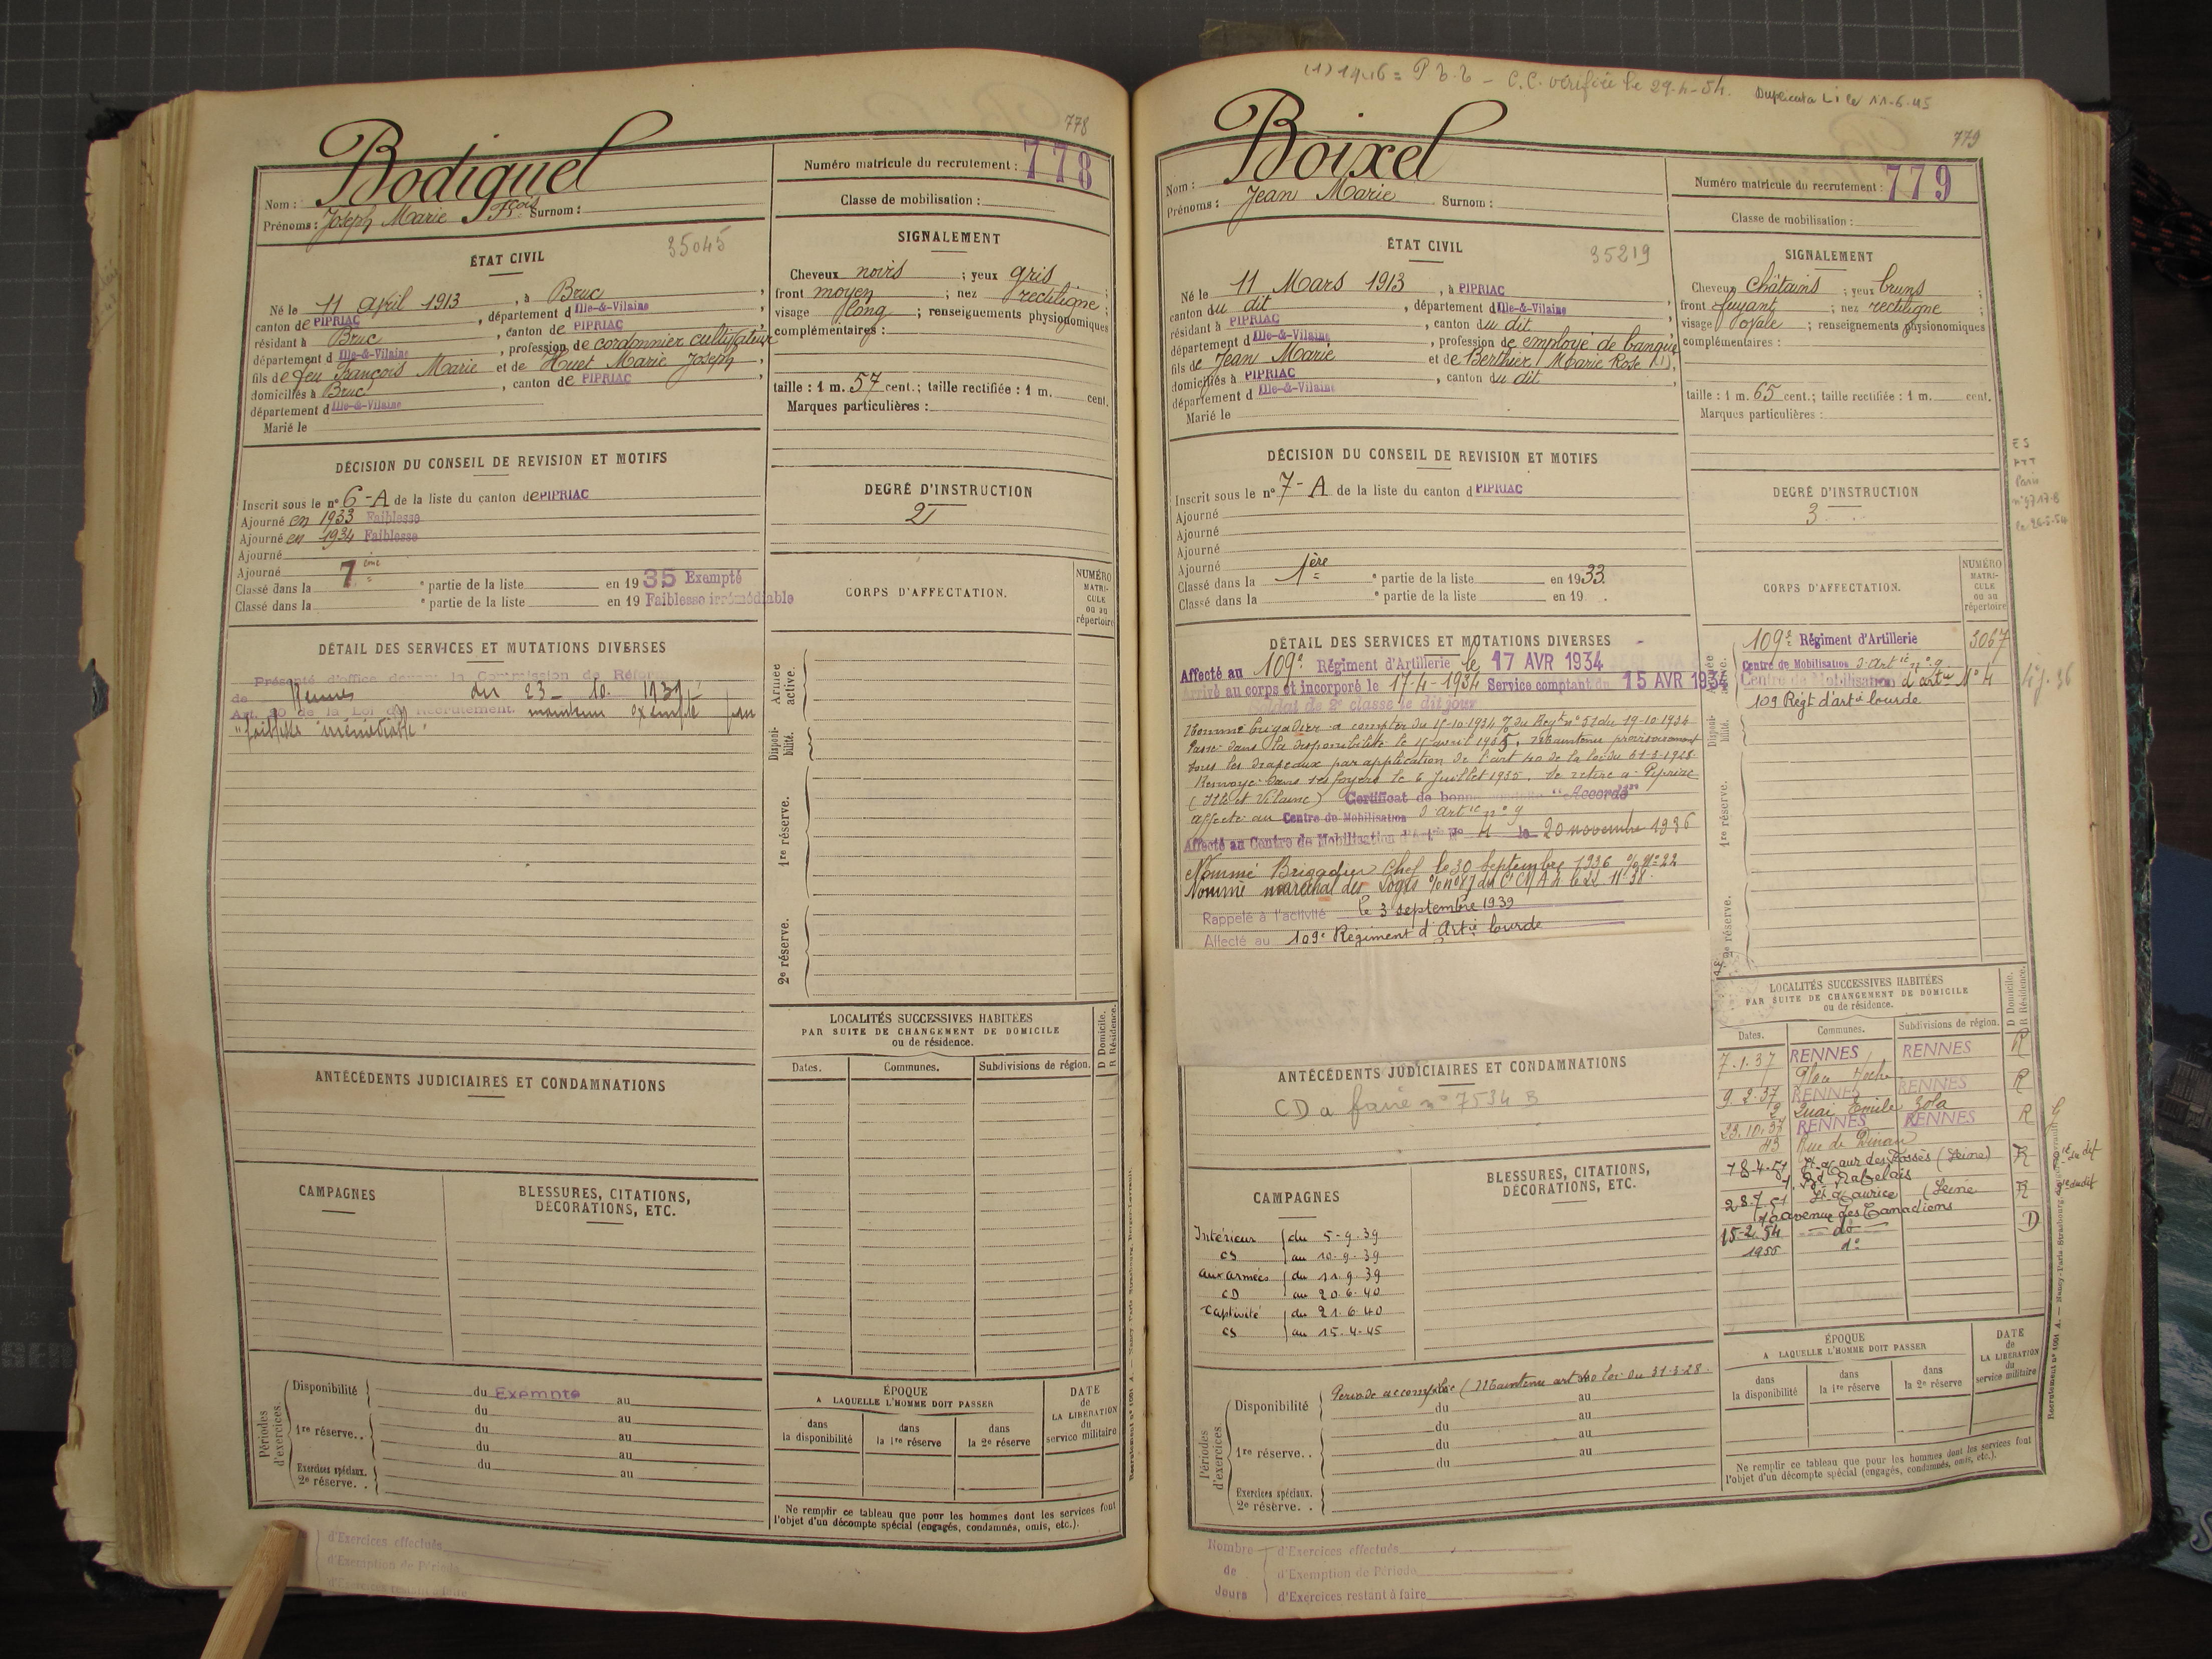 778
Bodiguel
Nom :
Prénoms : Joseph Marie Fçois Surnom :
Numéro matricule du recrutement : 778
Classe de mobilisation :
ÉTAT CIVIL
35045
Né le 11 avril 1913, à Bruc,
canton de PIPRIAC, département d Ille-&-Vilaine
résidant à Bruc, canton de PIPRIAC,
département d Ille-&-Vilaine, profession de cordonnier cultivateur
fils de feu François Marie et de Huet Marie Joseph,
domiciliés à Bruc, canton de PIPRIAC
département d Ille-&-Vilaine
Marié le
SIGNALEMENT
Cheveux noirs ; yeux gris ;
front moyen ; nez rectiligne ;
visage long ; renseignements physionomiques
complémentaires :
taille : 1 m. 57 cent.; taille rectifiée : 1 m. cent.
Marques particulières :
DÉCISION DU CONSEIL DE REVISION ET MOTIFS
Inscrit sous le nº 6-A de la liste du canton de PIPRIAC
Ajourné en 1933 Faiblesse
Ajourné en 1934 Faiblesse
Ajourné
Ajourné
Classé dans la 7ème e partie de la liste en 1935 Exempté
Classé dans la e partie de la liste en 19 Faiblesse irrémédiable
DEGRÉ D'INSTRUCTION
2
CORPS D'AFFECTATION.
NUMÉRO MATRI-CULE ou au répertoire
DÉTAIL DES SERVICES ET MUTATIONS DIVERSES
Présenté d'office devant la Commission de Réforme
de Rennes du 23-10-1939
Art. 20 de la Loi de Recrutement. maintenu exempté pour
"faiblesse irrémédiable"
Armée active.
Disponi-bilité.
1re réserve.
2e réserve.
LOCALITÉS SUCCESSIVES HABITÉES
PAR SUITE DE CHANGEMENT DE DOMICILE
ou de résidence.
D Domicile.
R Résidence.
Dates. Communes. Subdivisions de région.
ANTÉCÉDENTS JUDICIAIRES ET CONDAMNATIONS
CAMPAGNES
BLESSURES, CITATIONS,
DÉCORATIONS, ETC.
Périodes d'exercices.
Disponibilité du Exempté au
du au
1re réserve.. du au
du au
Exercices spéciaux. du au
2e réserve. .
ÉPOQUE
A LAQUELLE L'HOMME DOIT PASSER
dans la disponibilité
dans la 1re réserve
dans la 2e réserve
DATE de LA LIBÉRATION du service militaire
Ne remplir ce tableau que pour les hommes dont les services font
l'objet d'un décompte spécial (engagés, condamnés, omis, etc.).
d'Exercices effectués
d'Exemption de Période
d'Exercices restant à faire
C.C. vérifiée le 29-4-54. Duplicata Li le 11-6-45
779
Boixel
Nom :
Prénoms : Jean Marie Surnom :
Numéro matricule du recrutement : 779
Classe de mobilisation :
ÉTAT CIVIL
35219
Né le 11 Mars 1913, à PIPRIAC
canton du dit, département d Ille-&-Vilaine
résidant à PIPRIAC, canton du dit
département d Ille-&-Vilaine, profession de employé de banque
fils de Jean Marie et de Berthier Marie Rose (1),
domiciliés à PIPRIAC, canton du dit
département d Ille-&-Vilaine
Marié le
SIGNALEMENT
Cheveux châtains ; yeux bruns ;
front fuyant ; nez rectiligne ;
visage ovale ; renseignements physionomiques
complémentaires :
taille : 1 m. 65 cent.; taille rectifiée : 1 m. cent.
Marques particulières :
DÉCISION DU CONSEIL DE REVISION ET MOTIFS
Inscrit sous le nº 7-A de la liste du canton d PIPRIAC
Ajourné
Ajourné
Ajourné
Ajourné
Classé dans la 1ère e partie de la liste en 1933
Classé dans la e partie de la liste en 19
DEGRÉ D'INSTRUCTION
3
Paris
le 26-5-54
CORPS D'AFFECTATION.
NUMÉRO MATRI-CULE ou au répertoire
109e Régiment d'Artillerie 3067
Centre de Mobilisation d'Artie nº 9
Centre de Mobilisation d'artie Nº 4
109 Régt d'artie lourde
DÉTAIL DES SERVICES ET MUTATIONS DIVERSES
Affecté au 109e Régiment d'Artillerie le 17 AVR 1934
Arrivé au corps et incorporé le 17-4-1934 Service comptant du 15 AVR 1934
Soldat de 2e classe le dit jour
Nommé brigadier à compter du 15-10-1934 % du Régt nº 51 du 19-10-1934
Passé dans la disponibilité le 15 avril 1935, Maintenu provisoirement
sous les drapeaux par application de l'art 40 de la loi du 31-3-1928
Renvoyé dans ses foyers le 6 Juillet 1935. Se retire à Pipriac
(Ille et Vilaine) Certificat de bonne conduite "Accordé"
affecté au Centre de Mobilisation d'Artie nº 9
Affecté au Centre de Mobilisation d'Artie Nº 4 le 20 novembre 1936
Nommé Brigadier Chef le 30 Septembre 1936 % Nº 22
Nommé maréchal des Logis % nº 87 du CMA 4 le 22 11 38
Rappelé à l'activité le 3 septembre 1939
Affecté au 109e Régiment d'Artie lourde
Disponi-bilité.
1re réserve.
2e réserve.
LOCALITÉS SUCCESSIVES HABITÉES
PAR SUITE DE CHANGEMENT DE DOMICILE
ou de résidence.
D Domicile.
R Résidence.
Dates. Communes. Subdivisions de région.
7.1.37 RENNES RENNES R
Place Hoche
9.2.37 RENNES RENNES R
2 Quai Emile Zola
23.10.37 RENNES RENNES R
43 Rue de Dinan
18-4-51 St Maur des Fossés (Seine) R
1, Bd Rabelais
28.7.51 St Maurice (Seine R
70 avenue des Canadiens
15-2-54 do D
1955 do
ANTÉCÉDENTS JUDICIAIRES ET CONDAMNATIONS
CD a faire nº 7534 B
CAMPAGNES
Intérieur du 5-9-39
CS au 10-9-39
aux armées du 11-9-39
CD au 20-6-40
Captivité du 21-6-40
CS au 15-4-45
BLESSURES, CITATIONS,
DÉCORATIONS, ETC.
Périodes d'exercices.
Disponibilité Période accomplie (Maintenu art 40 loi du 31-3-28.
du au
du au
1re réserve. . du au
du au
Exercices spéciaux.
2e réserve. .
ÉPOQUE
A LAQUELLE L'HOMME DOIT PASSER
dans la disponibilité
dans la 1re réserve
dans la 2e réserve
DATE de LA LIBÉRATION du service militaire
Ne remplir ce tableau que pour les hommes dont les services font
l'objet d'un décompte spécial (engagés, condamnés, omis, etc.).
Nombre de Jours
d'Exercices effectués
d'Exemption de Période
d'Exercices restant à faire